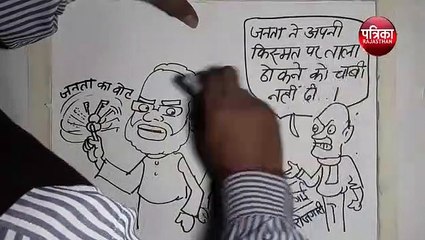 पत्रिका
RAJASTHAN
जनता ने अपनी
किस्मत पर ताला
ठोकने को चाबी
नहीं दी...!
जनता का वोट